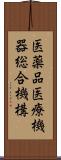 医薬品医療機
器総合機構